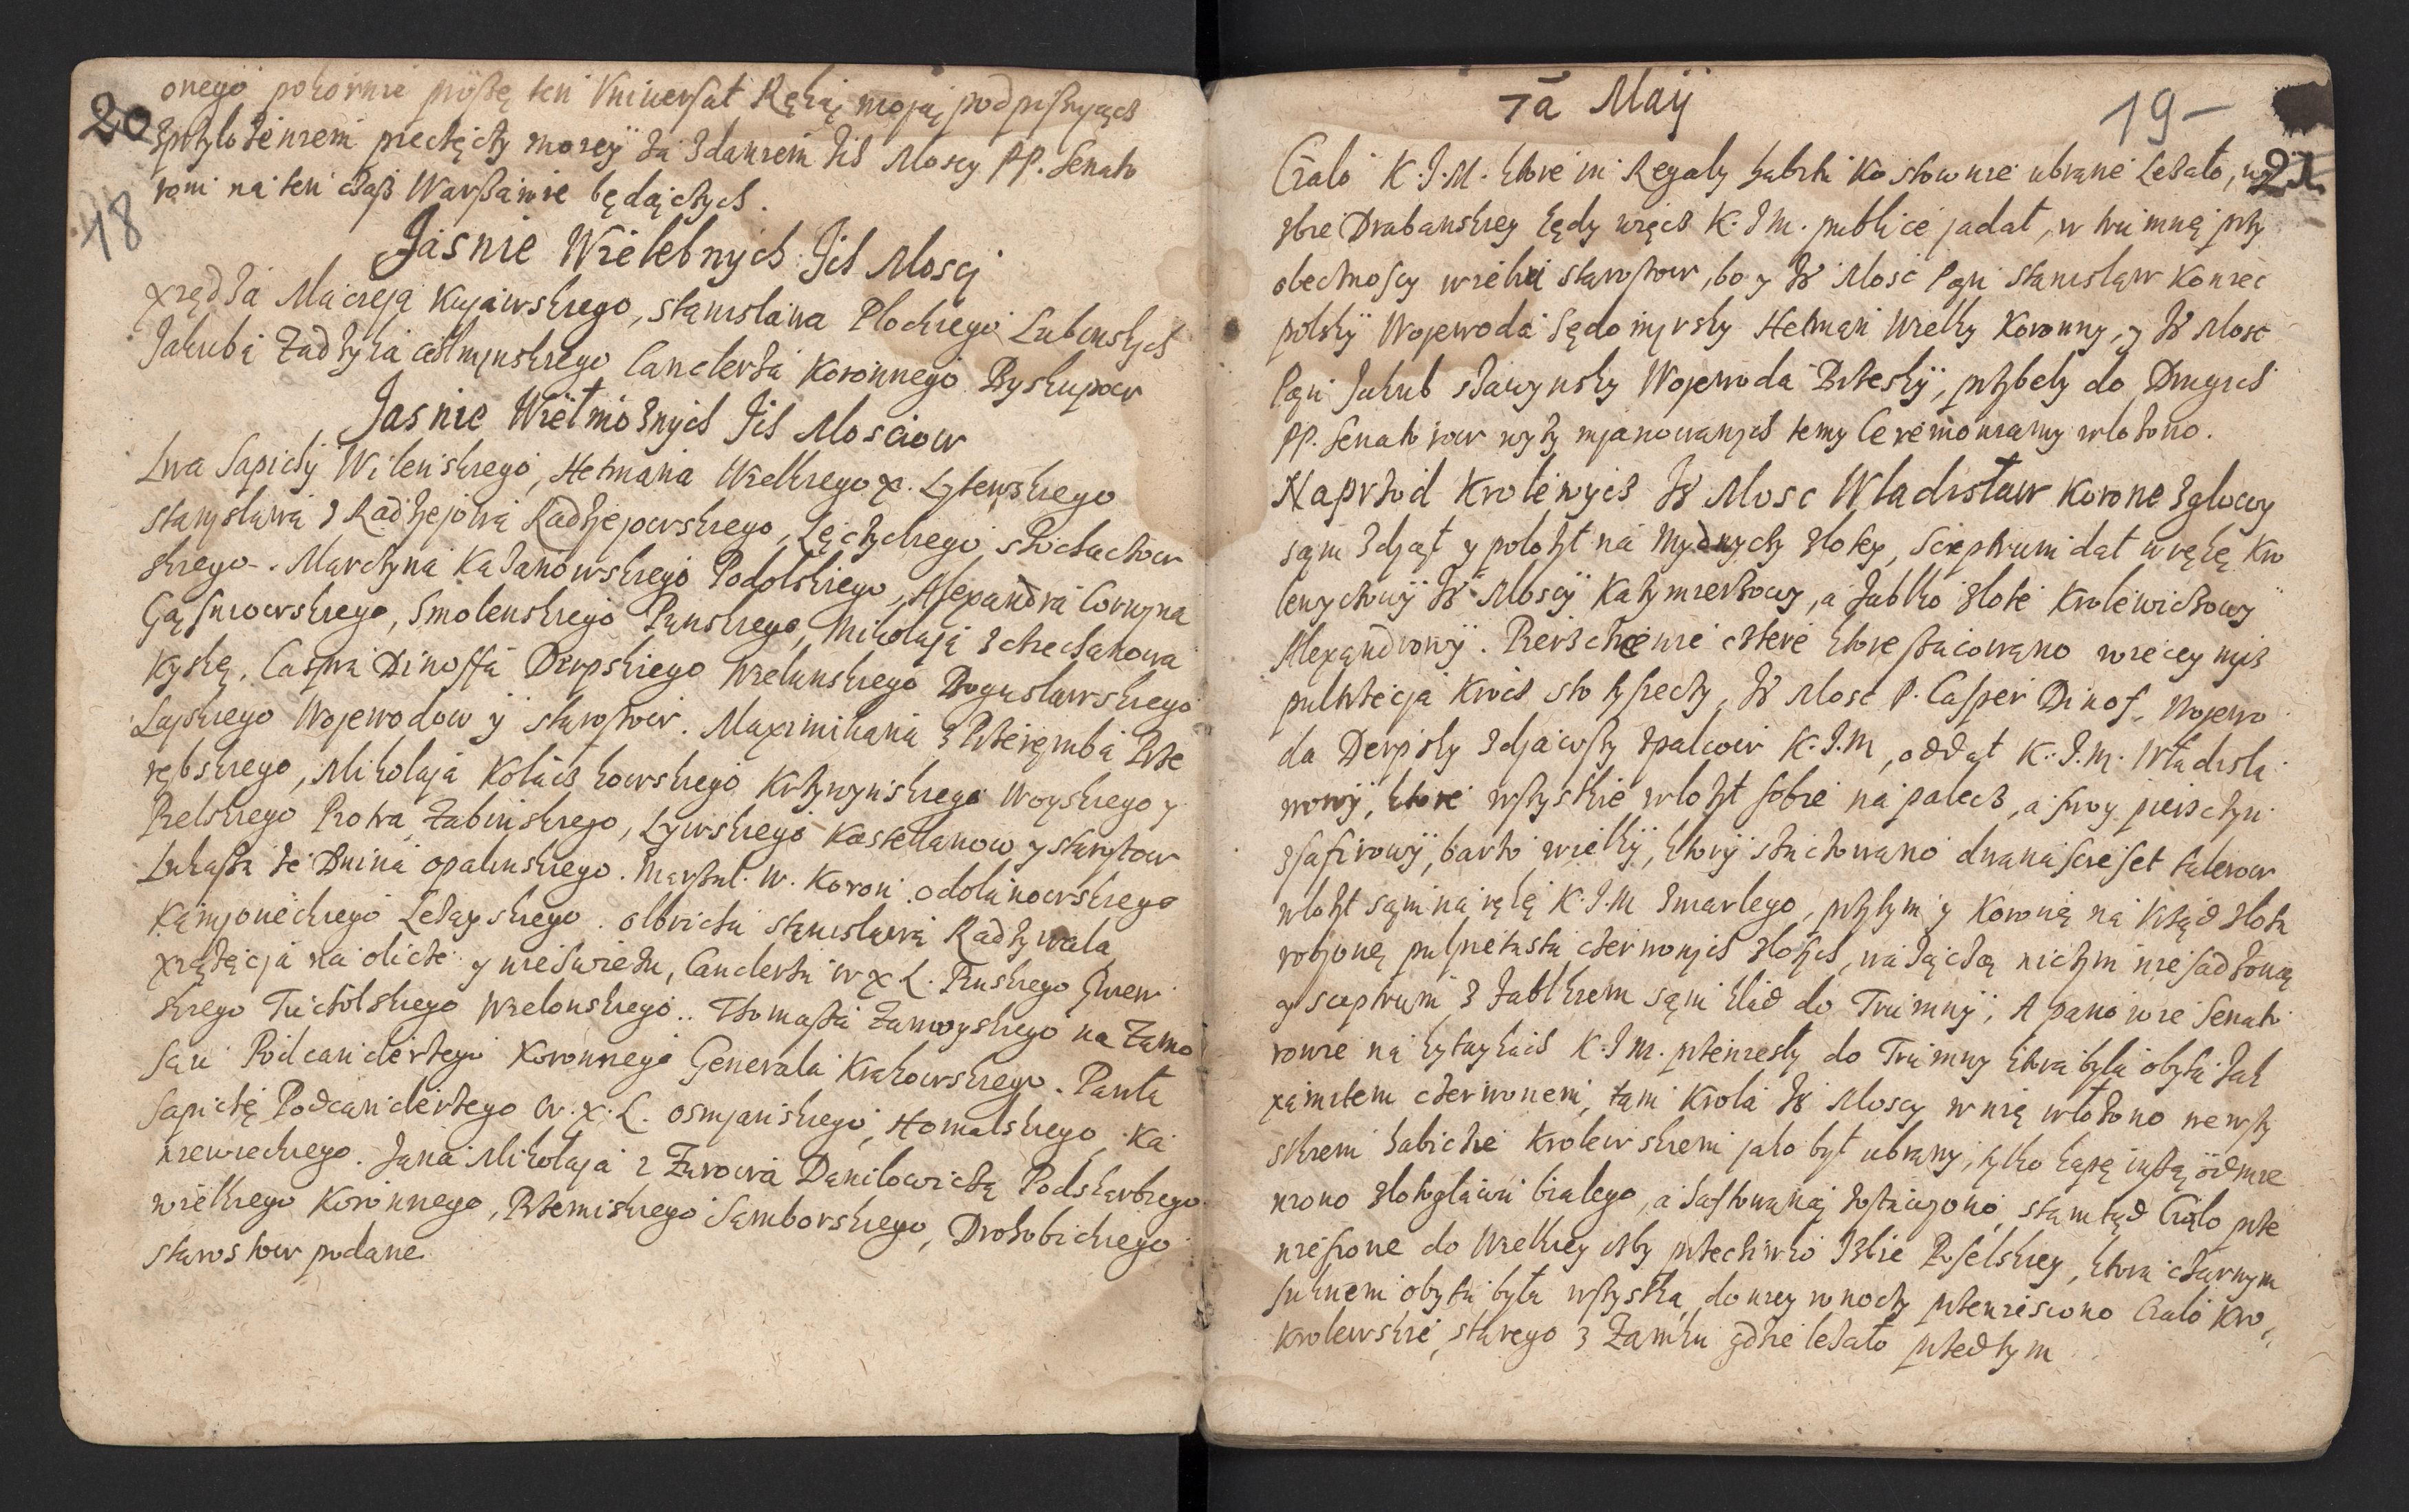 20
onego pokornie proszę ten Vniuersał Ręką moją podpisującz
zprzylożeniem pieczęczy moiey za zdaniem Ich Moscy PP. Senato
rom na ten czasz Warszawie będączych.
18
Jasnie Wielebnych Ich Mosci
xzędza Macieja Kujawskiego, Stanisława Plockiego Lubinskych
Jakuba Zadzyka Chelmynskiego Canclerza Koronnego Byskupow
Jasnie Wielmoznych Ich Mosciow
Lwa Sapiehy Wilenskiego, Hetmana Wielkiego x. Lytewskiego
Stanysława z Radzyejowa Radzyejowskiego, Lęczyckiego, Sochaczow
skiego. Marczyna Kazanowskiego Podolskiego, Alexandra Corvyna
Gąsiewskiego, Smolenskiego Pynskiego, Mikołaja
Kyskę, Caspra Dinoffa Derpskiego Wielunskiego Bogusławskiego
Lajskiego Wojewodow y starostow. Maximiliana z Przerębia Prze
rębskiego, Mikołaja Kolaczkowskiego Krzywynskiego Woyskiego y
Bielskiego Piotra Zabinskiego, Lywskiego Kastellanow y starostow
Lukasza ze Bnina Opalinskiego. Marszal. W. Koron. Odolanowskiego
Kamjoneckiego Leżayskiego. Olbrichta Stanisława Radzywala
xiążęcia na Olicze y nieswieżu, Canclerza w x. L. Pinskiego Gniew
skiego Tucholskiego Wielonskiego.. Thomasza Zamoyskiego na Zamo
sciu Podcanclerzego Koronnego Generala Krakowskiego. Pawla
Sapiehę Podcanclerzego W. x. L. Osmjanskiego, Homelskiego, Ka
niewieckiego. Jana Mikołaja z Zurowa Daniłowicza Podskarbiego
wielkiego Koronnego, Przemiskiego Samborskiego, Drohobickiego
starostow podane.
7a Maij
19-
21
Cialo K.J.M. ktore in Regaly habitu Kostownie ubrane Leżało, w
zbie Drabanskiey kędy więcz K. J M. publice jadał, w trumnę przy
obecnoscy wielu starostow, bo y JE Mosc Pan Stanisław Koniec
polsky Wojewoda Sędomyrsky Hetman Wielky Koronny, y JE Mosc
Pan Jakub Sczawynsky Wojewoda Brzesky, przybely do Drugich
PP. Senatorow wyży mjanowanych temy Ceremoniamy włożono.
Naprzod Krolewycz JE Mosc Wladisław Korone zglowy
sam zdjął y polożył na Mydnyczy zlotey, Scieptrum dał w rękę Kro
lewyczowy JE Moscy Kazymierzowy, a Jablko zlote Krolewiczowy
Alexandrowy. Pierscienie cztere ktore szacowano wiecey nyż
pultrzecja kroc sto tysiecy, JE Mosc P. Casper Dinof, Wojewo
da Derpsky zdjąwszy zpalcow K.J.M, oddał K.J.M. Władisla
wowy, ktore wszystkie włożył sobie na palecz, a swoy pierzczyn
zsafirowy, barzo wielky, ktory szaczowano dwanascieset talerow
włożył sam na rękę K.J.M zmarlego, przytym y Koronę na Krząd zlota
robjoną pulpietasta czerwonych zlotych, ważączą niczym nie sadzoną
y sceptrum z Jablkiem sam klad do Trumny; A panowie Senato
rowie na K.J M. przeniesly do Trumny ktora byla obyta
xamitem czerwonem, tam Krola JE Moscy w nię włożono we wszy
skiem habicie Krolewskiem jako był ubrany, tylko kapę inszą odmie
niono zlotoglowu bialego, a haftowaną stamtąd Cialo prze
niesione do Wielkiey izby przeciwko Izbie Poselskiey, ktora czarnym
suknem obyta była wszystka, doniey w noczy przeniesiono Cialo Kro,,
Krolewskie, starego z Zamku gdzie leżało przedtym